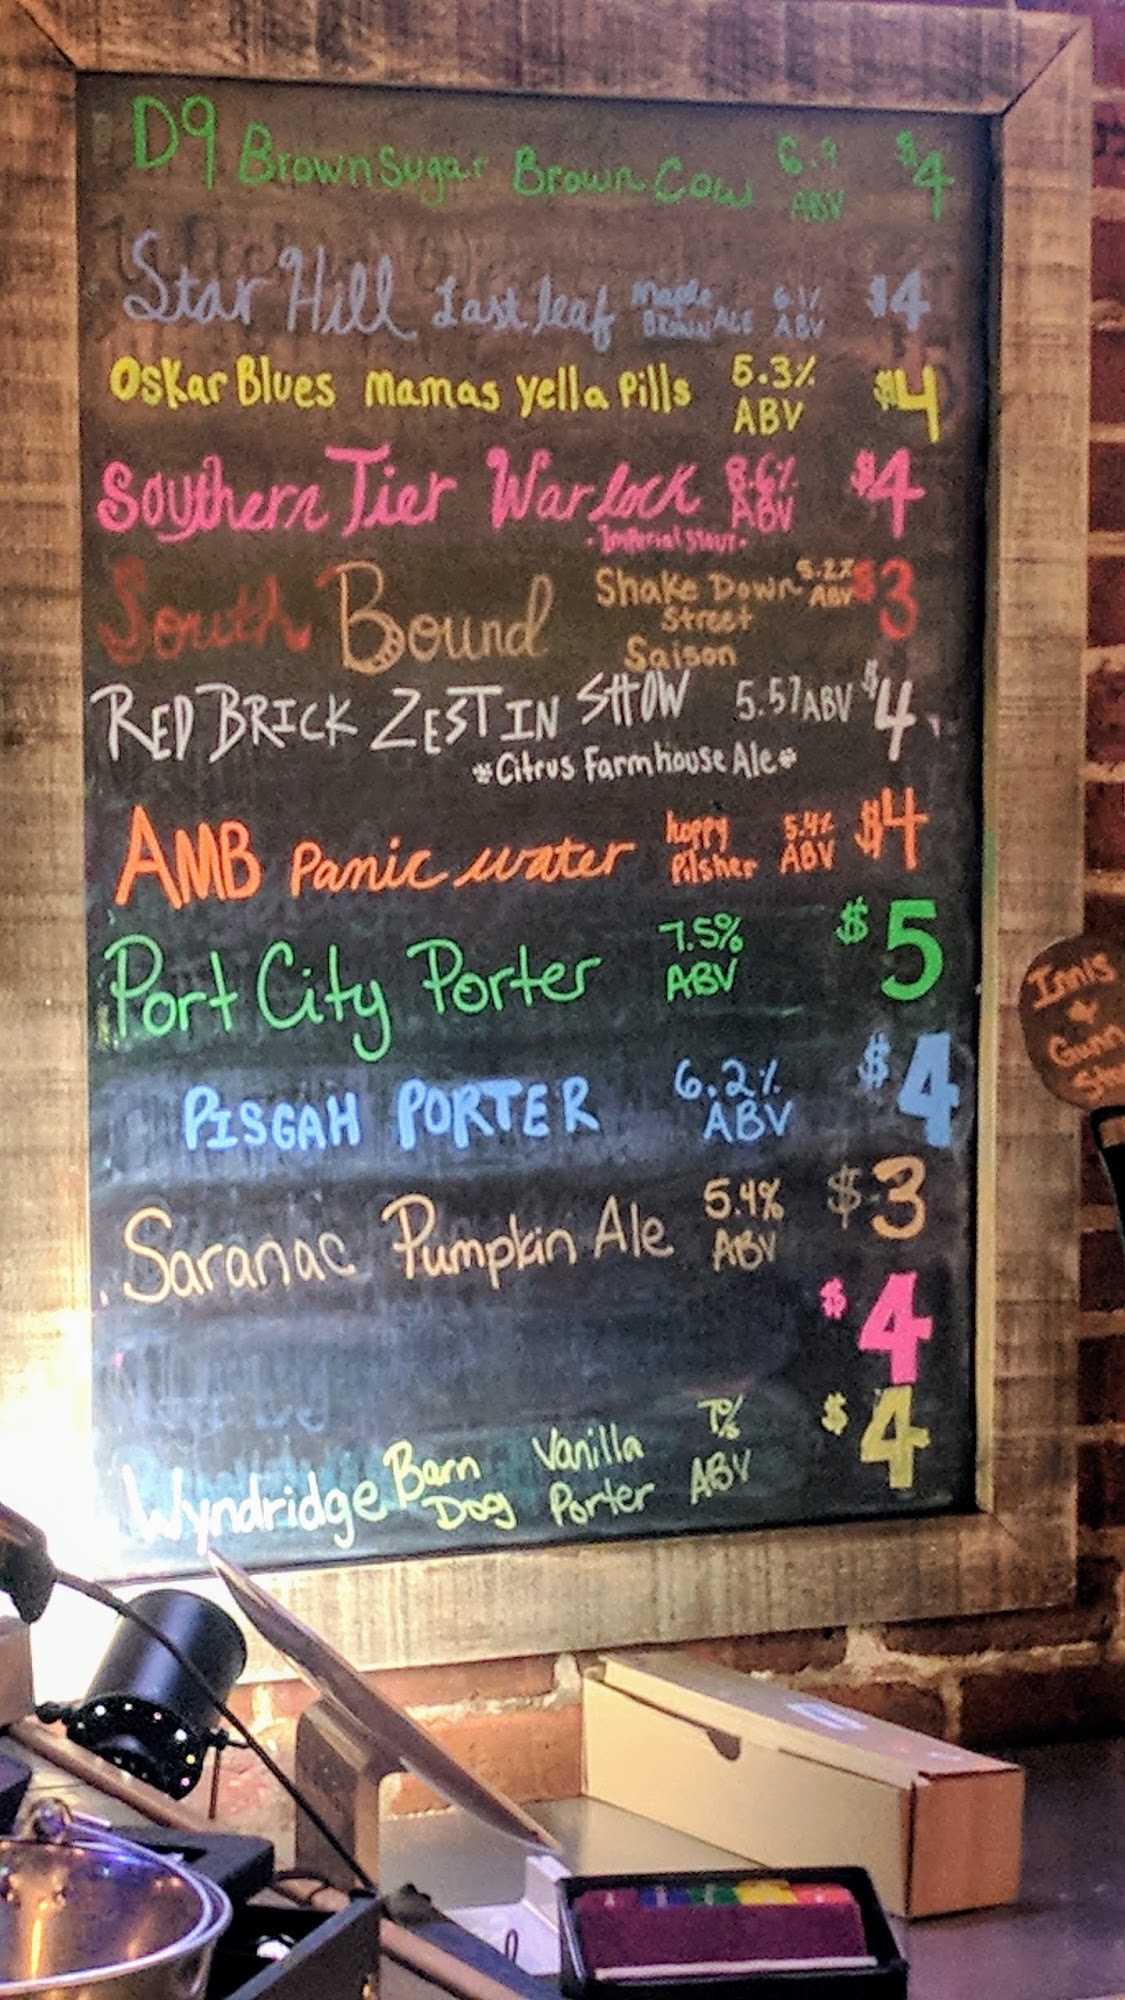 D9 Brown Sugar Brown Cow 6.9 ABV $4
Star Hill Last leaf Maple Brown ALE 6.1% ABV $4
Oskar Blues mamas yella Pills 5.3% ABV $4
Southern Tier Warlock 8.6% ABV $4
- Imperial Stout -
South Bound Shake Down Street Saison 5.2% ABV $3
RED BRICK ZEST IN SHOW 5.5% ABV $4
*Citrus Farmhouse Ale*
AMB Panic water hoppy Pilsner 5.4% ABV $4
Port City Porter 7.5% ABV $5
PISGAH PORTER 6.2% ABV $4
Saranac Pumpkin Ale 5.4% ABV $3
$4
Wyndridge Barn Dog Vanilla Porter 7% ABV $4
Innis
Gunn